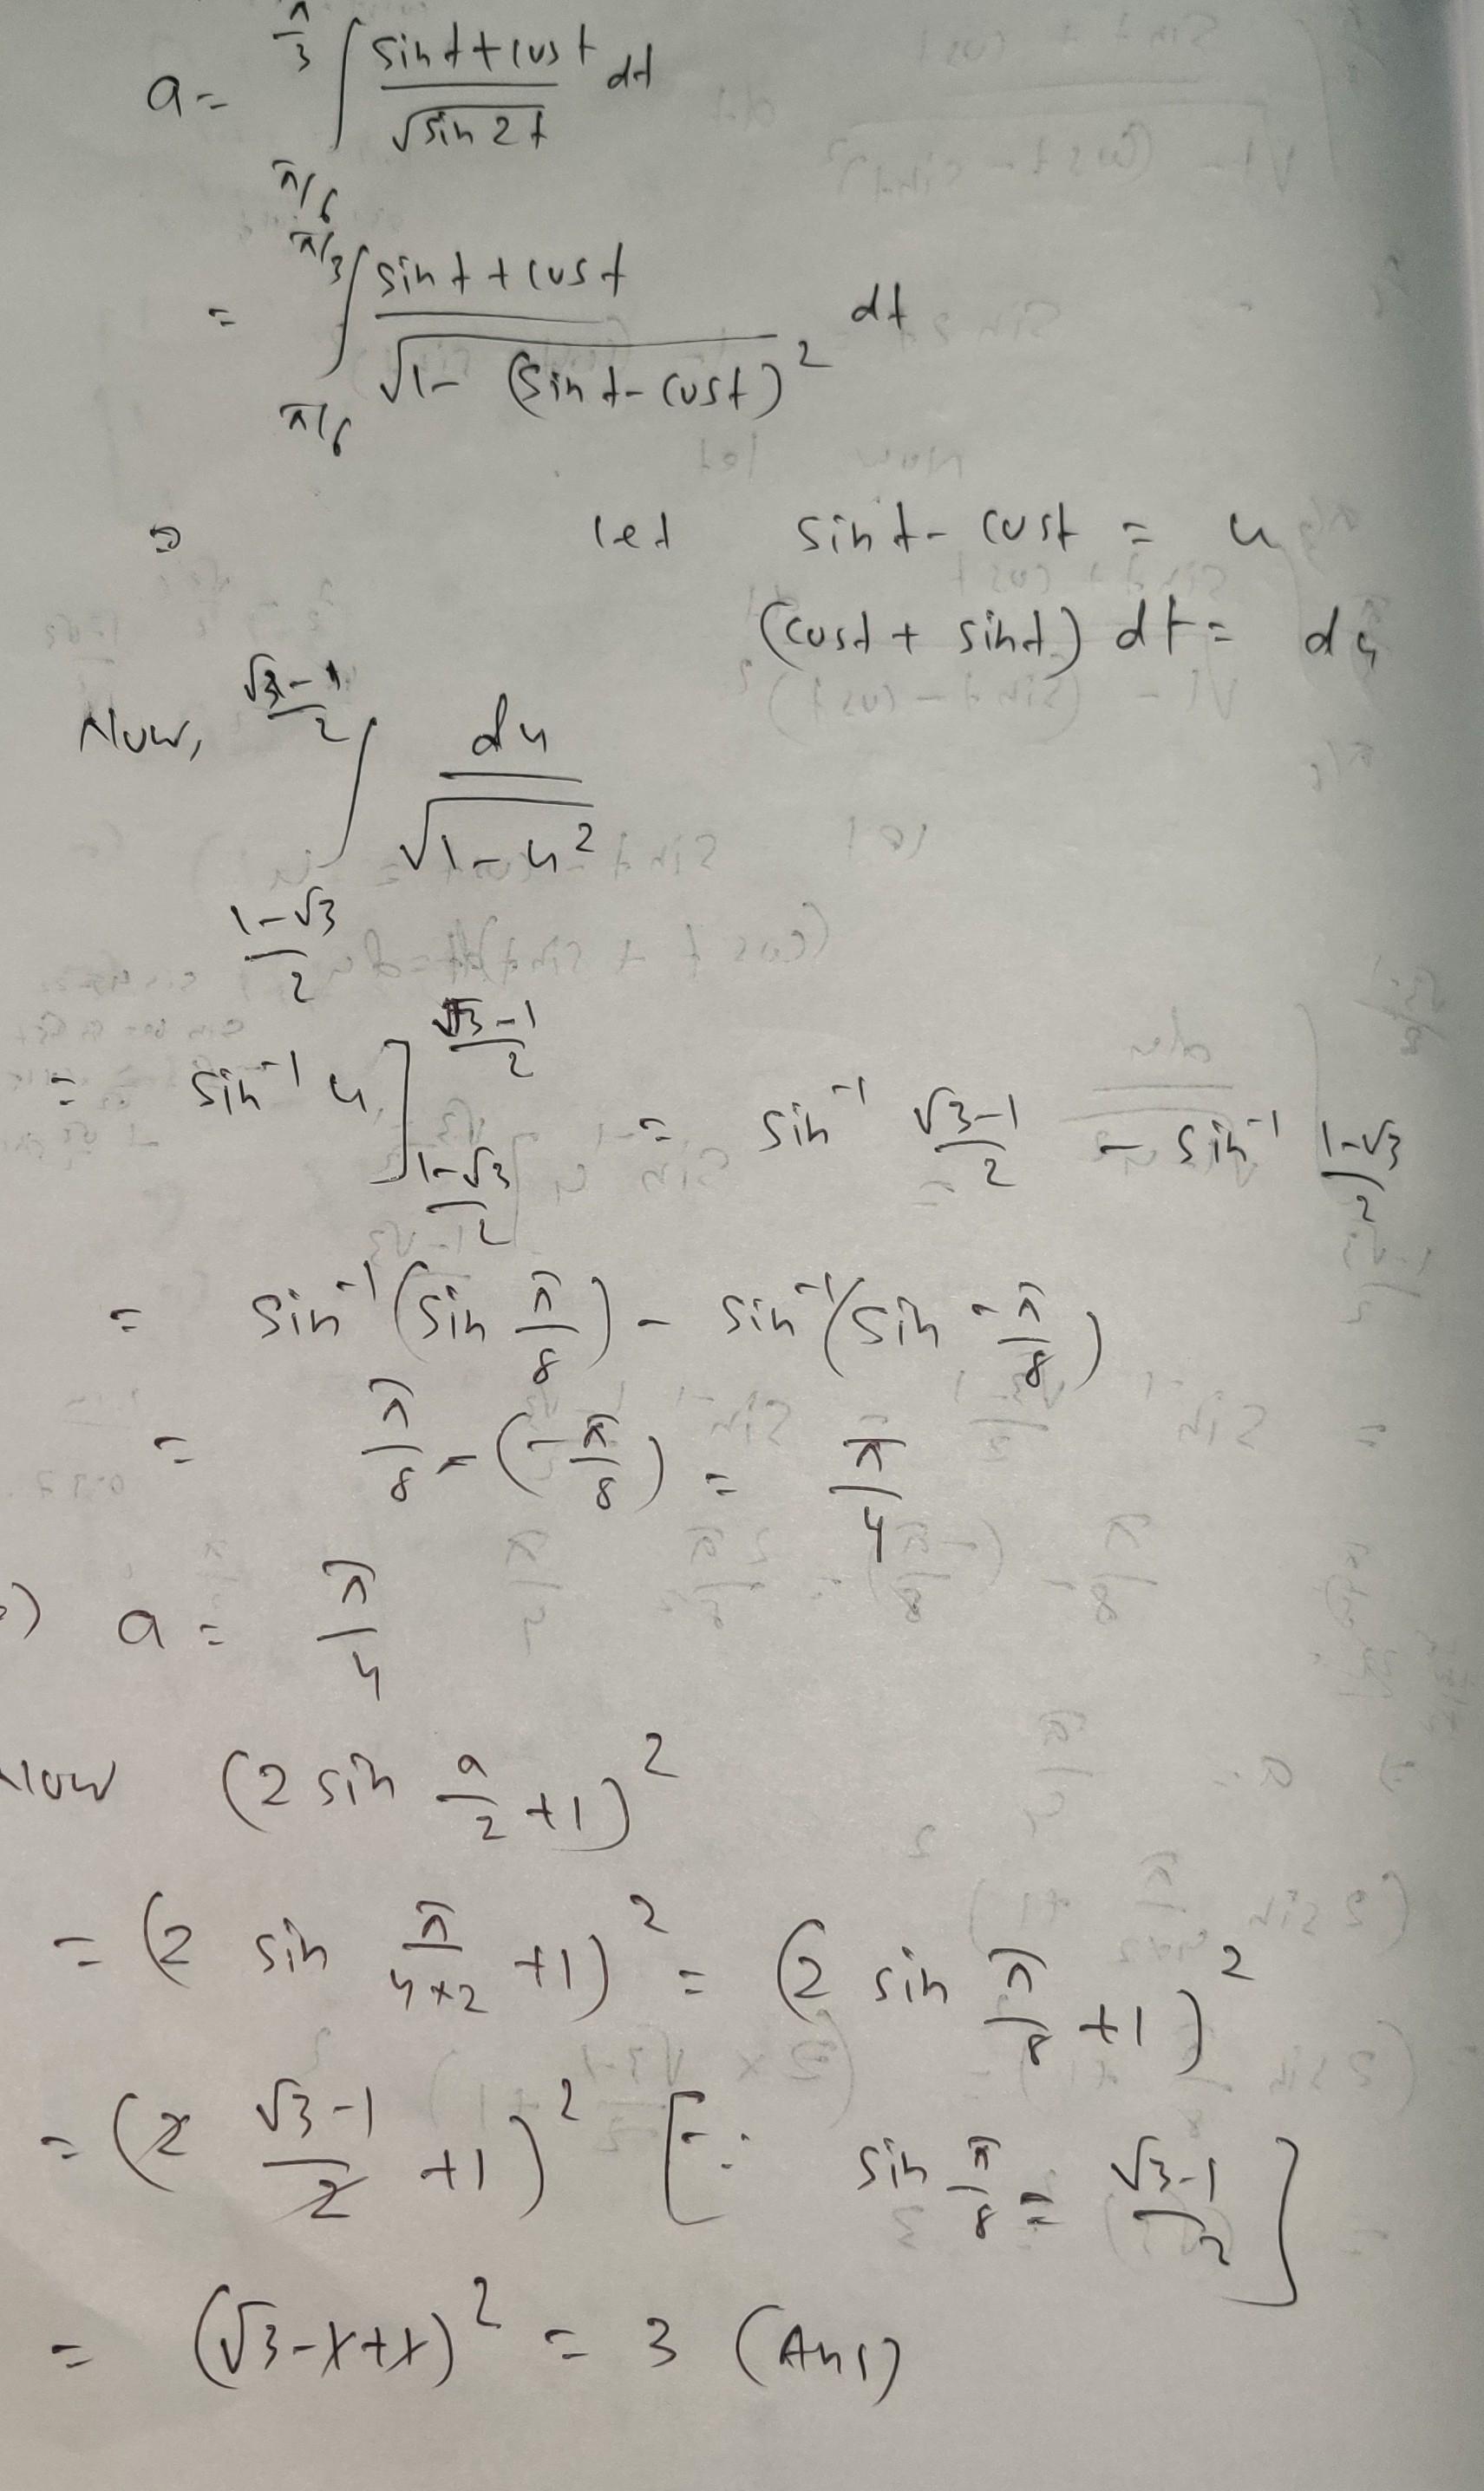 a = ∫_{π/6}^{π/3} (sin t + cos t)/√(sin 2t) dt
= ∫_{π/6}^{π/3} (sin t + cos t)/√(1 - (sin t - cos t)²) dt
⇒ let sin t - cos t = u
(cos t + sin t) dt = du
Now, ∫_{(1-√3)/2}^{(√3-1)/2} du/√(1-u²)
= sin⁻¹ u]_{(1-√3)/2}^{(√3-1)/2} = sin⁻¹ (√3-1)/2 - sin⁻¹ (1-√3)/2
= sin⁻¹(sin π/8) - sin⁻¹(sin -π/8)
= π/8 - (-π/8) = π/4
⇒) a = π/4
Now (2 sin a/2 + 1)²
= (2 sin π/(4×2) + 1)² = (2 sin π/8 + 1)²
= (2 (√3-1)/2 + 1)² [∵ sin π/8 = (√3-1)/2]
= (√3-1+1)² = 3 (Ans)